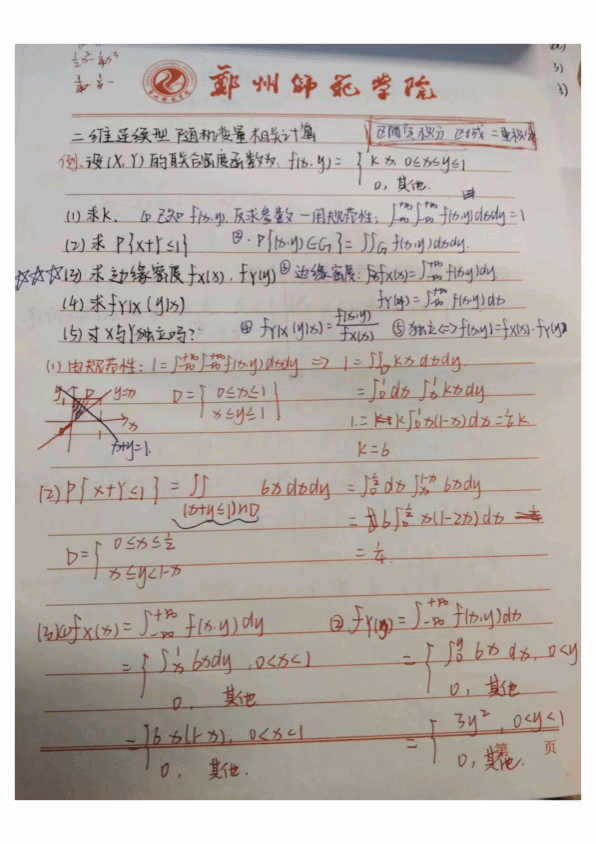 ½x²-⅓x³
郑州师范学院
二维连续型随机变量相关计算
例.设(X,Y)的联合密度函数为: f(x,y)= { kx, 0≤x≤y≤1
0, 其他.
(1) 求k. ① 已知 f(x,y), 反求参数—用规范性: ∫₋∞^+∞ ∫₋∞^+∞ f(x,y)dxdy=1
(2) 求 P{X+Y≤1} ②. P{(x,y)∈G}=∬_G f(x,y)dxdy.
☆☆☆(3) 求边缘密度 fX(x). fY(y) ③ 边缘密度: fX(x)=∫₋∞^+∞ f(x,y)dy
(4) 求 fY|X (y|x) fY(y)=∫₋∞^+∞ f(x,y)dx
(5) 求 X与Y独立吗? ④ fY|X (y|x)=f(x,y)/fX(x) ⑤ 独立⇔f(x,y)=fX(x)·fY(y)
(1) 由规范性: 1=∫₋∞^+∞ ∫₋∞^+∞ f(x,y)dxdy ⇒ 1=∬_D kx dxdy.
y y=x D={ 0≤x≤1 =∫₀¹dx ∫ₓ¹ kx dy
x x≤y≤1 1=k∫₀¹x(1-x)dx=⅙k
x+y=1. k=6
(2) P{X+Y≤1} =∬ 6x dxdy =∫₀^½ dx ∫ₓ^1-x 6x dy
(x+y≤1)∩D =6∫₀^½ x(1-2x)dx
D={ 0≤x≤½ =¼.
x≤y<1-x
(3)① fX(x)=∫₋∞^+∞ f(x,y)dy ② fY(y)=∫₋∞^+∞ f(x,y)dx
={ ∫ₓ¹ 6x dy, 0<x<1 ={ ∫₀^y 6x dx, 0<y
0, 其他 0, 其他
={ 6x(1-x), 0<x<1 ={ 3y², 0<y<1
0, 其他. 0, 其他.
第 页